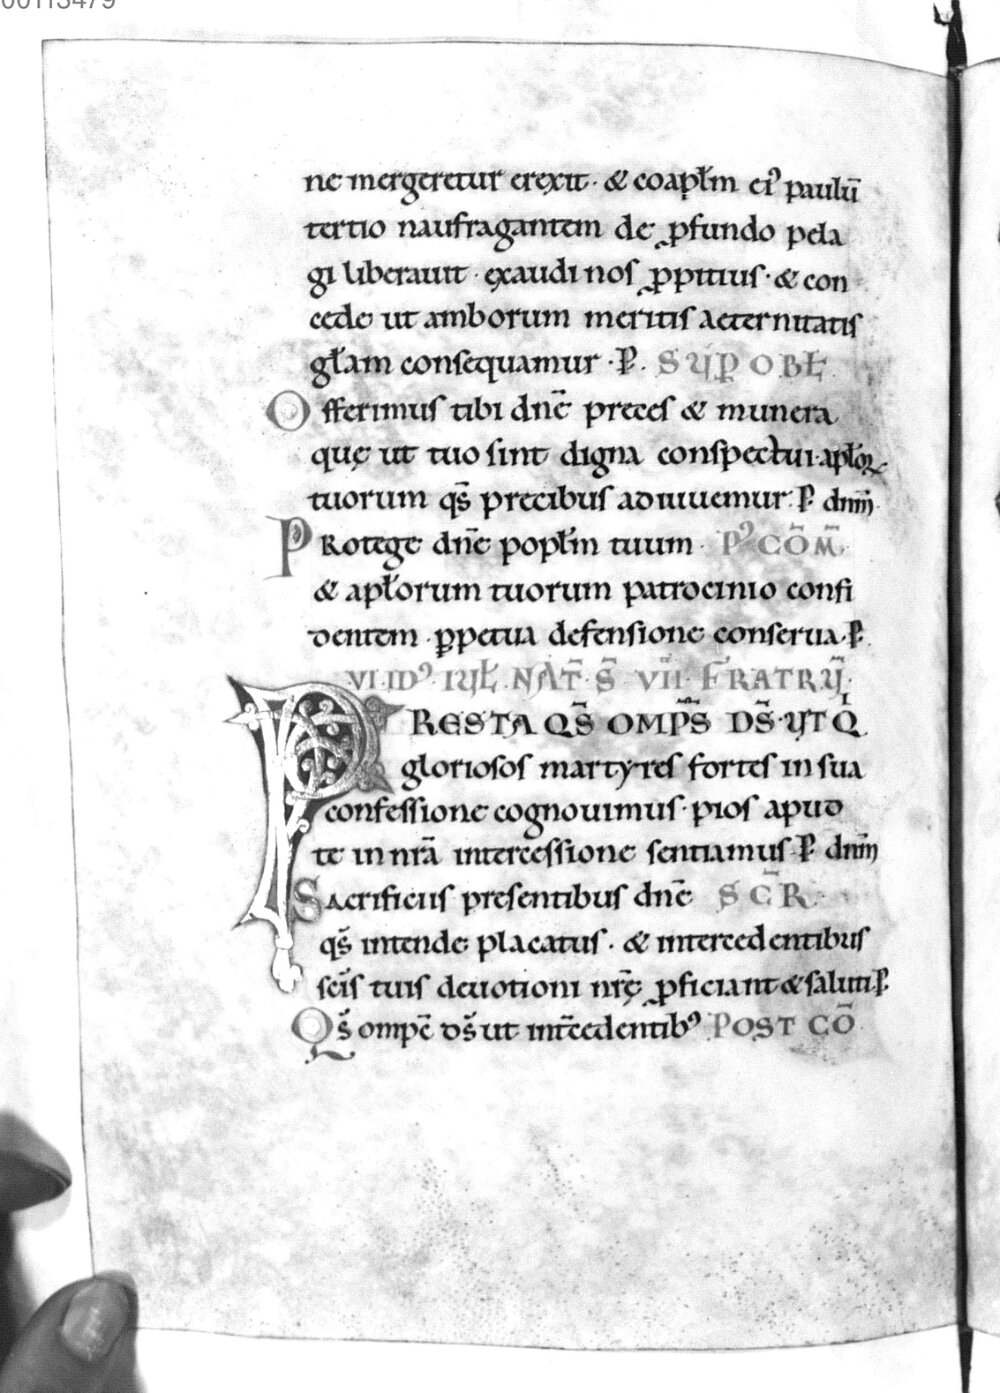 00113479
ne mergeretur erexit · & coapłm ei᾽ paulū
tertio naufragantem de ꝓfundo pela
gi liberauit · exaudi nos ꝓpitius · & con
cede ut amborum meritis aeternitatis
gł̄am consequamur · P̄. SUP̱ OBŁ.
Offerimus tibi dn̄e preces & munera
quę ut tuo sint digna conspectui · apłoꝝ
tuorum qs̄ precibus adiuuemur · P̄ dn̄m̄
Protege dn̄e popłm tuum · Pꝰ COM̄
& apłorum tuorum patrocinio confi
dentem ꝑpetua defensione conserua · P̄.
VI · IDꝰ IUŁ · NAT̄ · S̄ · VII · FRATRŪ ·
PRESTA QS̄ OMP̄S DS̄ · UT Qⁱ
gloriosos martyres fortes in sua
confessione cognouimus · pios apud
te in nr̄a intercessione sentiamus · P̄ dn̄m̄
Sacrificiis presentibus dn̄e SEC̄R ·
qs̄ intende placatus · & intercedentibus
sc̄is tuis deuotioni nr̄ę ꝓficiant & saluti P̄.
Qs̄ omp̄c ds̄ ut int̄cedentibꝰ POST CŌ